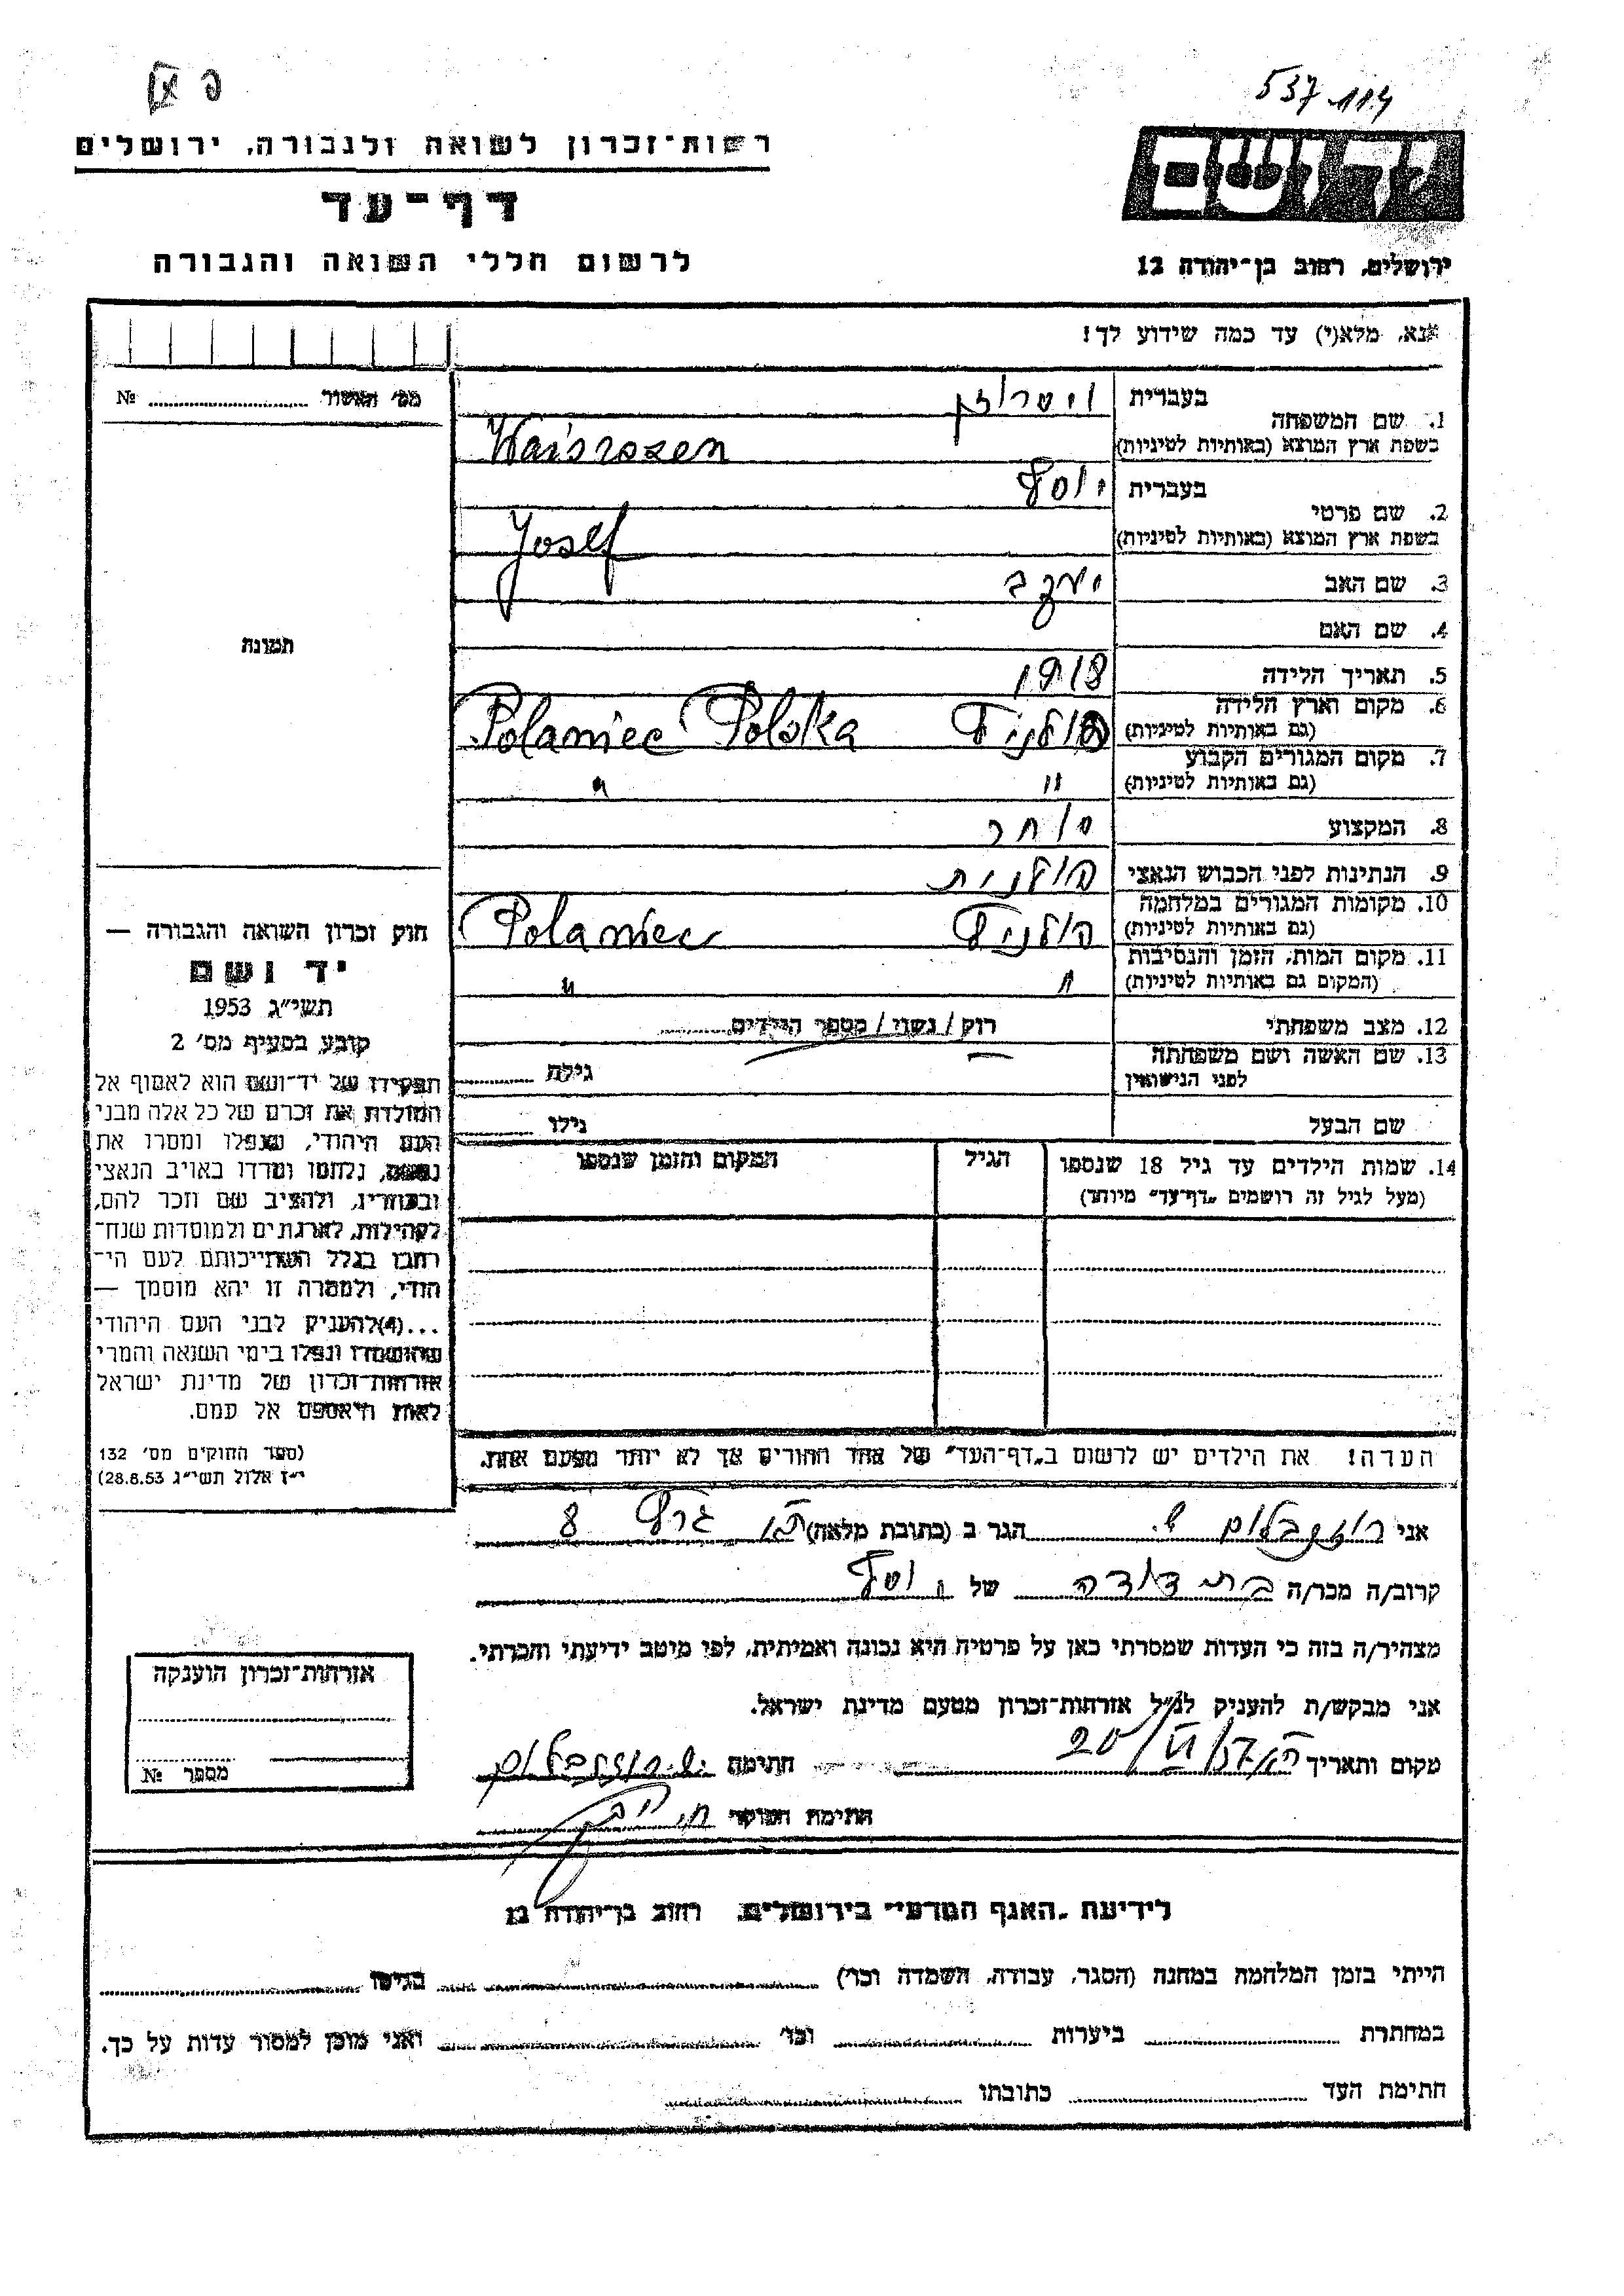 537-114
פ א
ידושם
רשות-זכרון לשואה ולגבורה, ירושלים
דף-עד
לרשום חללי השואה והגבורה
ירושלים, רחוב בן-יהודה 12
אנא, מלא(י) עד כמה שידוע לך!
מס' האשור № 
1. שם המשפחה בעברית ויסרוזן
בשפת ארץ המוצא (באותיות לטיניות) Waisrozen
2. שם פרטי בעברית יוסף
בשפת ארץ המוצא (באותיות לטיניות) Josef
3. שם האב יעקב
4. שם האם
5. תאריך הלידה 1918
6. מקום וארץ הלידה (גם באותיות לטיניות) פולניץ Polaniec Polska
7. מקום המגורים הקבוע (גם באותיות לטיניות) " "
8. המקצוע סוחר
9. הנתינות לפני הכבוש הנאצי פולנית
10. מקומות המגורים במלחמה (גם באותיות לטיניות) פולניץ Polaniec
11. מקום המות, הזמן והנסיבות (המקום גם באותיות לטיניות) " "
12. מצב משפחתי רוק / נשוי / מספר הילדים
13. שם האשה ושם משפחתה לפני הנישואין גילה
שם הבעל גילו
14. שמות הילדים עד גיל 18 שנספו הגיל המקום והזמן שנספו
(מעל לגיל זה רושמים "דף-עד" מיוחד)
הערה! את הילדים יש לרשום ב"דף-העד" של אחד ההורים אך לא יותר מפעם אחת.
תמונה
חוק זכרון השואה והגבורה —
יד ושם
תשי"ג 1953
קובע בסעיף מס' 2
תפקידו של יד-ושם הוא לאסוף אל
המולדת את זכרם של כל אלה מבני
העם היהודי, שנפלו ומסרו את
נפשם, נלחמו ומרדו באויב הנאצי
ובעוזריו, ולהציב שם וזכר להם,
לקהילות, לארגונים ולמוסדות שנח-
רבו בגלל השתייכותם לעם הי-
הודי, ולמטרה זו יהא מוסמך —
...(4) להעניק לבני העם היהודי
שהושמדו ונפלו בימי השואה והמרי
אזרחות-זכרון של מדינת ישראל
לאות היאספם אל עמם.
(ספר החוקים מס' 132
י"ז אלול תשי"ג 28.8.53)
אני רוזנבלום ש. הגר ב (כתובת מלאה) ת"א גרץ 8
קרוב/ה מכר/ה בת דודה של יוסף
מצהיר/ה בזה כי העדות שמסרתי כאן על פרטיה היא נכונה ואמיתית, לפי מיטב ידיעתי והכרתי.
אני מבקש/ת להעניק לנ"ל אזרחות-זכרון מטעם מדינת ישראל.
מקום ותאריך ת"א 20/VI/57 חתימה ש. רוזנבלום
חתימת הפוקד
אזרחות-זכרון הוענקה
מספר №
לידיעת "האגף המדעי" בירושלים, רחוב בן-יהודה 12
הייתי בזמן המלחמה במחנה (הסגר, עבודה, השמדה וכו') בגיטו
במחתרת ביערות וכו' ואני מוכן למסור עדות על כך.
חתימת העד כתובתו